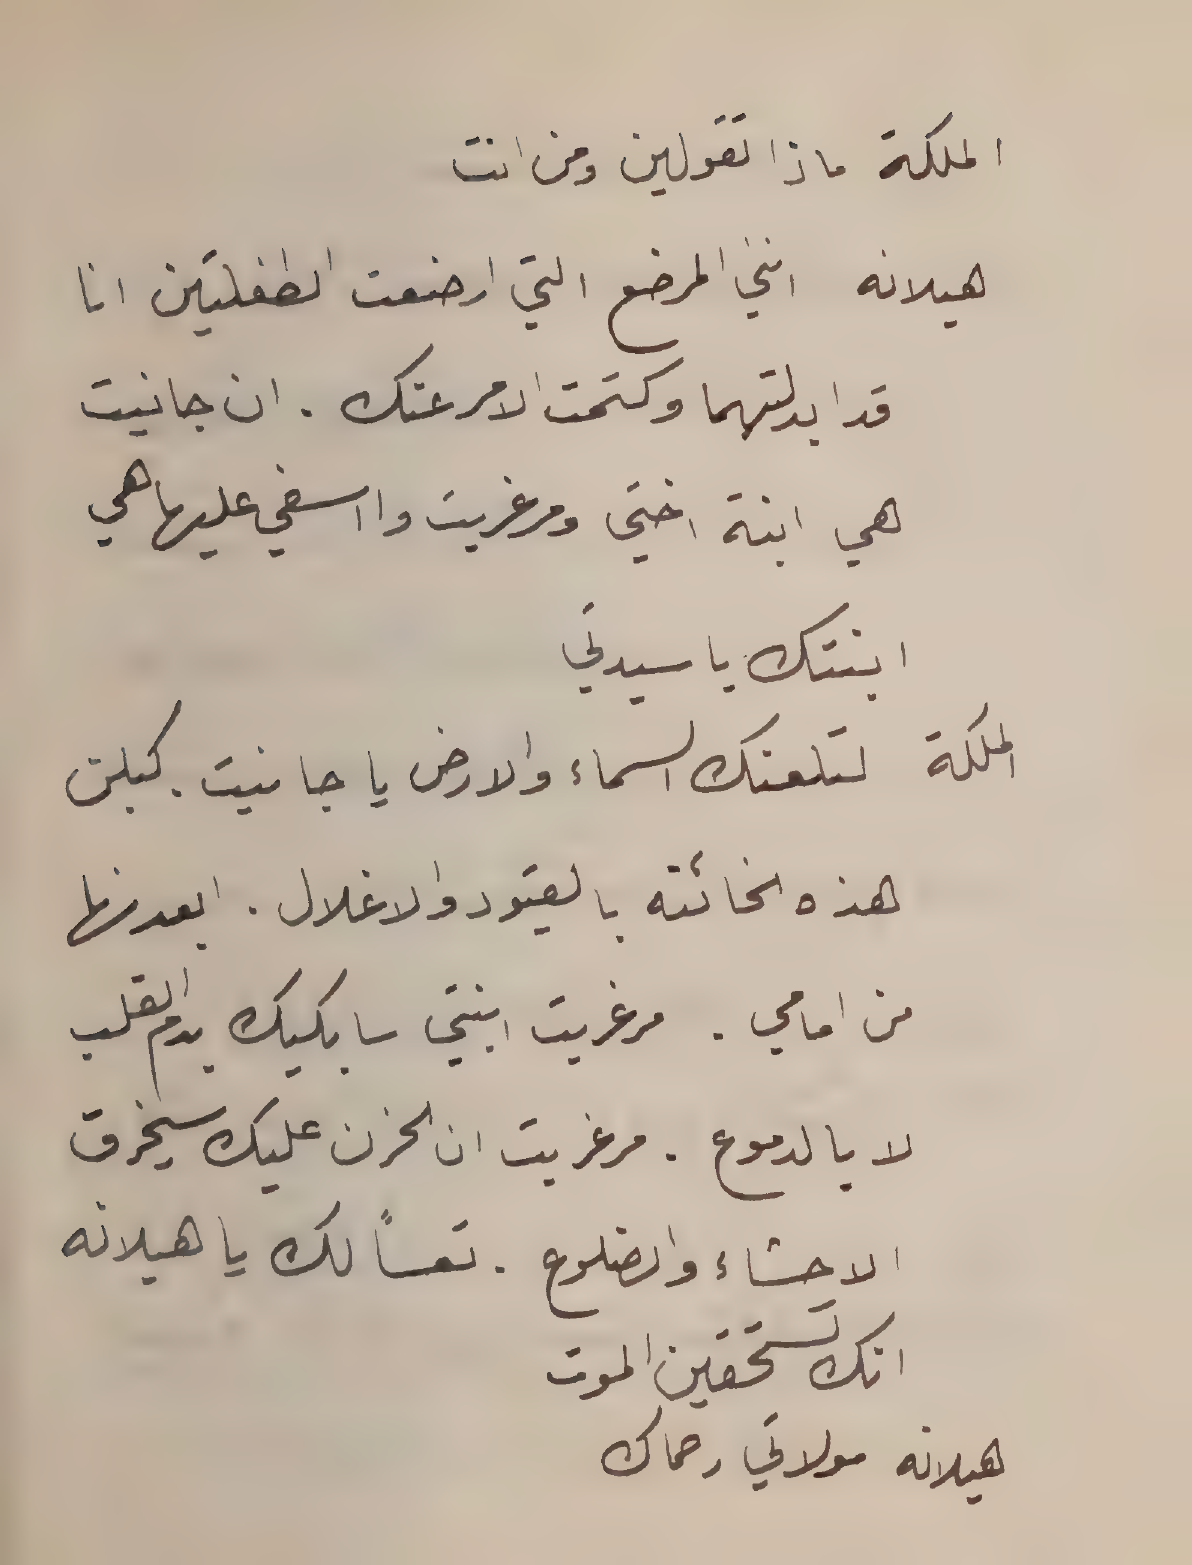 الملكة ماذا تقولين ومن انت
هيلانه انني المرضع التي ارضعت الطفلتين انا
قد ابدلتهما وكتمت الامر عنك . ان جانيت
هي ابنة اختي ومرغريت وا اسفي عليها هي
ابنتك يا سيدتي
الملكة لتلعنك السماء والارض يا جانيت . كبلن
هذه الخائنه بالقيود والاغلال . ابعدنها
من امامي . مرغريت ابنتي سابكيك بدم القلب
لا بالدموع . مرغريت ان الحزن عليك سيخرق
الاحشاء والضلوع . تعساً لك يا هيلانه
انك تستحقين الموت
هيلانه مولاتي رحماك